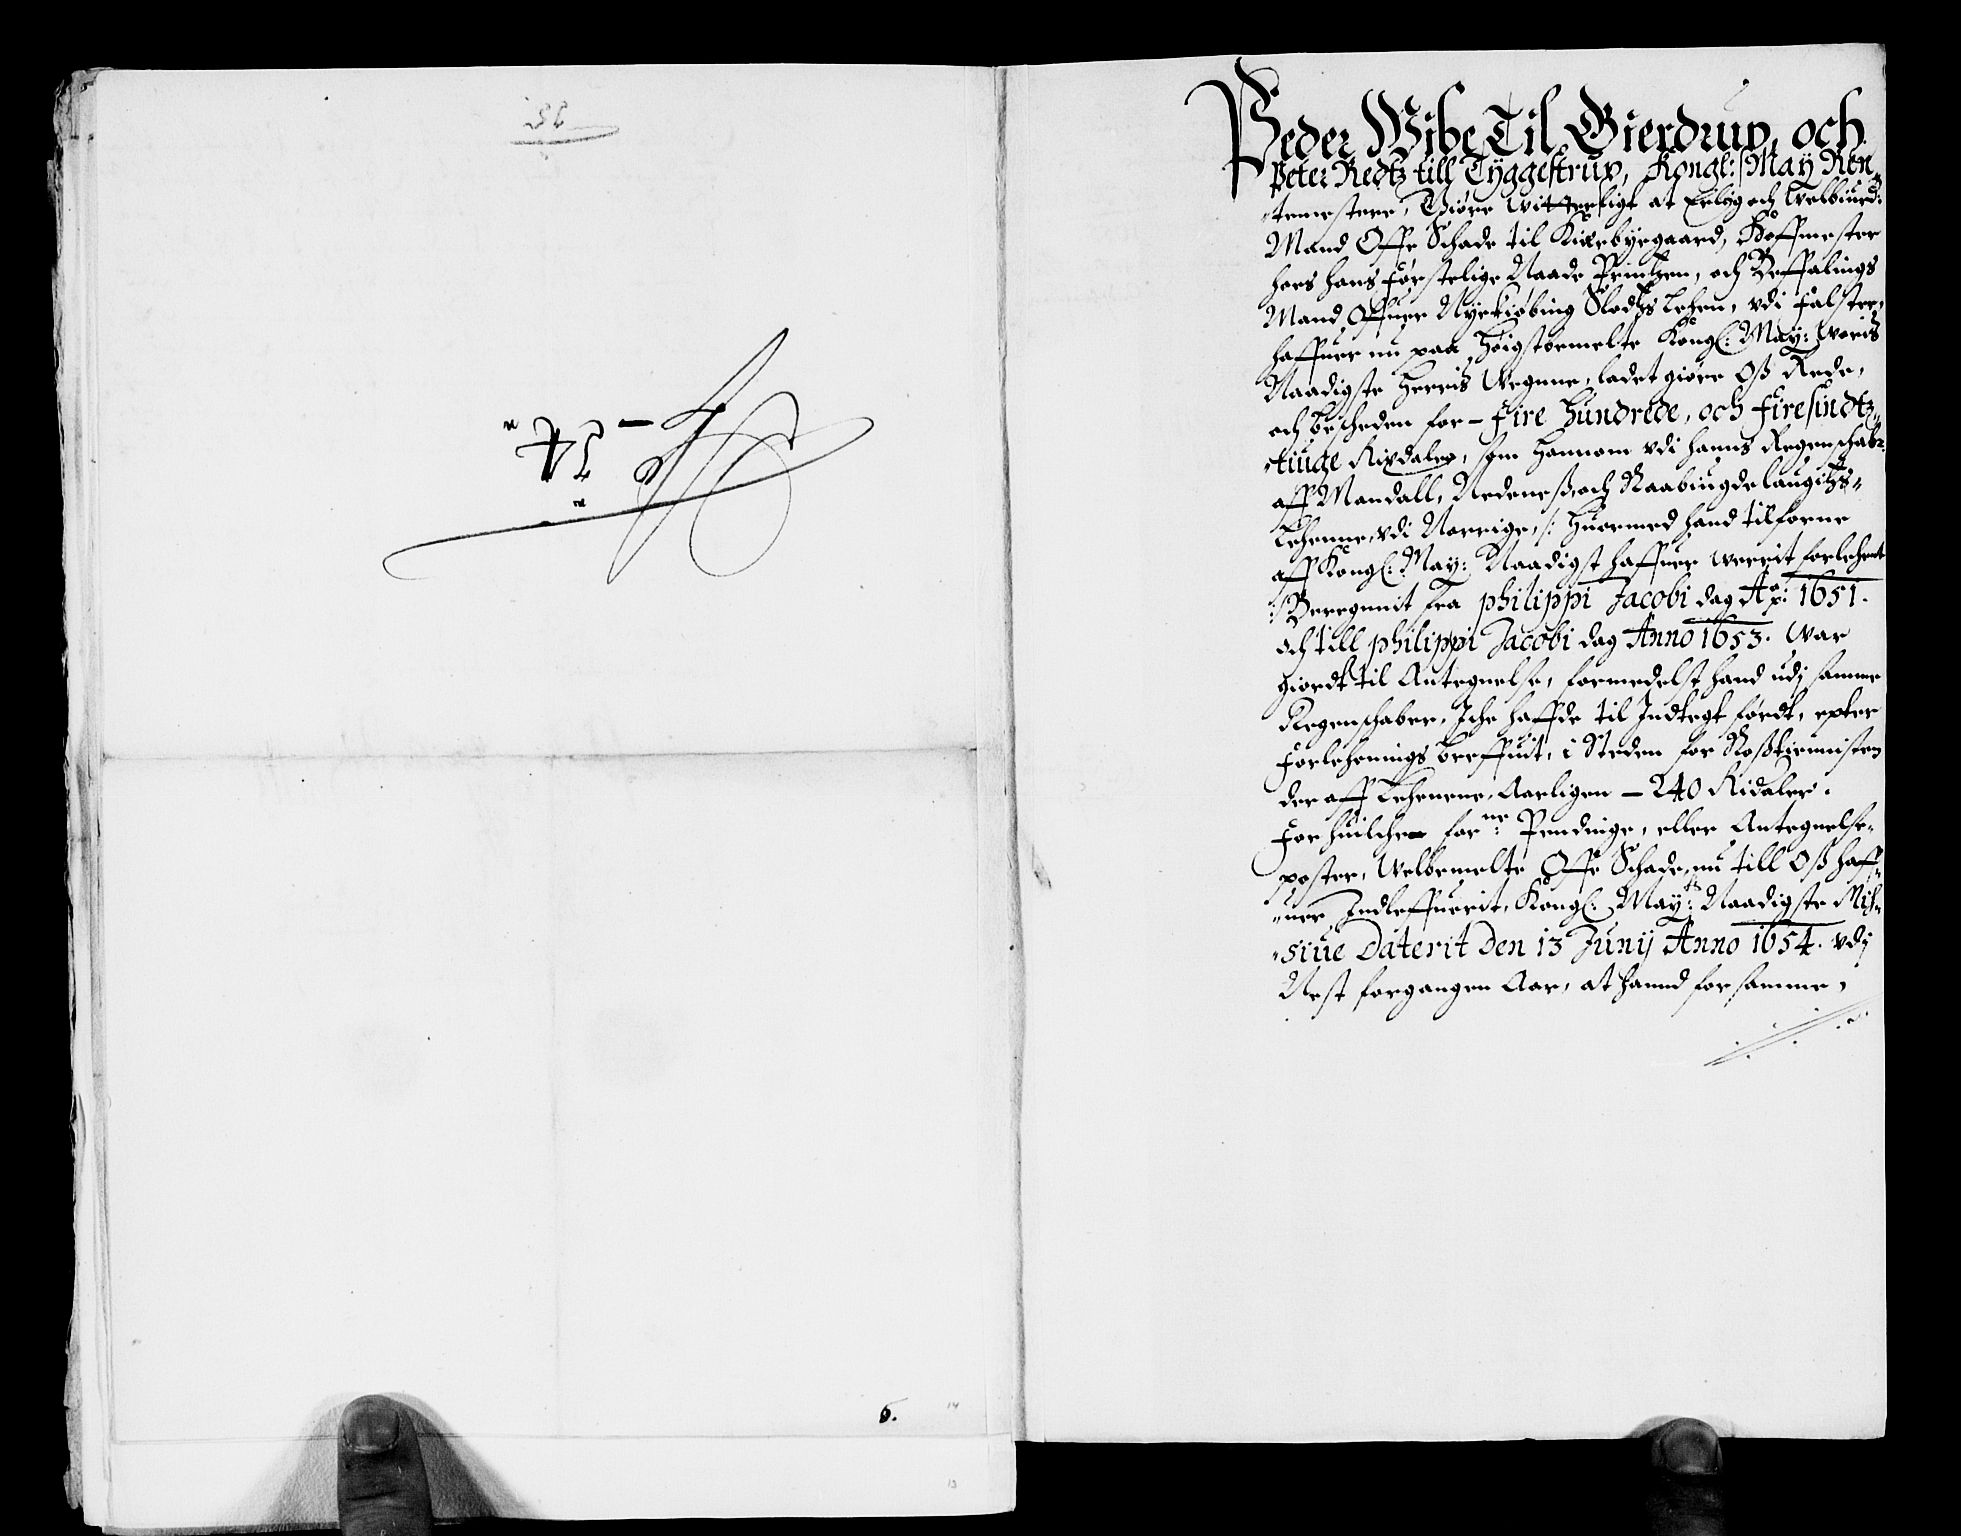 Peder Wibe Til Gierdrup, och
Peter Redtz till Tÿggestrup, Kongl: May Ren„
„temestere, Giøre Witterligt at Erlig och Welbiurd:
Mand Offe Schade til Kierbyegaard, Hoffmester
hoes hans Førstelige Naade Printzen, och Beffalings
Mand Offuer Nyekiøbing Slodtz Lehen, vdi Falster,
haffuer nu paa Høigstbemelte Kongl: May: Woris
Naadigste Herris Wegnne, ladet giøre Oß Rede,
och Bescheden for – Fire Hundrede, och Firesindtz„
„tiuge Rixdaler, som Hannom vdi hanns Regenschaber
aff Mandall, Nedeneß, och Raabiugdelaugitz„
Lehenne, vdi Norrige, /: Huormed hand tilforne
aff Kongl: May: Naadigst haffuer werrit forlehent
:/ Beregnnit fra Philippi Jacobi dag Aº: 1651.
och till Philippi Jacobi dag Anno 1653. War
giordt til Antegnelse, formedelst hand udj samme
Regenschaber, Iche haffde til Indtegt førdt, epter
Forlehnings breffuit, i Steden for Roßtiennisten
der aff Lehenene, Aarligen – 240 Rixdaler.
For huilche for:ne Pendinge, eller Antegnelse„
poster, Welbemelte Offe Schade, nu till Oß haff„
„uer Indleffuerit, Kongl: May:tz Naadigste Mis„
„siue Daterit Den 13 Junij Anno 1654. vdj
Nest forgangen Aar, at hannd for samme,
6.
14
13